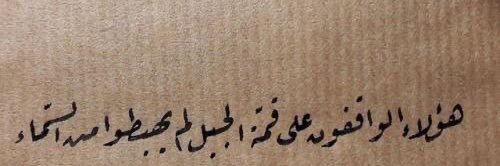 هؤلاء الواقفون على قمة الجبل لم يهبطوا من السماء